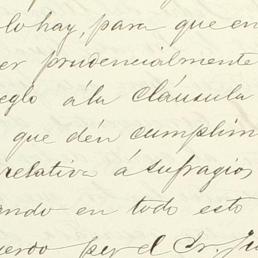 lo hay, para que en
er prudencialmente
eglo á la cláusula
que dén cumplim
relativa á sufragios
ando en todo esto
uerdo por el Sr. Ju